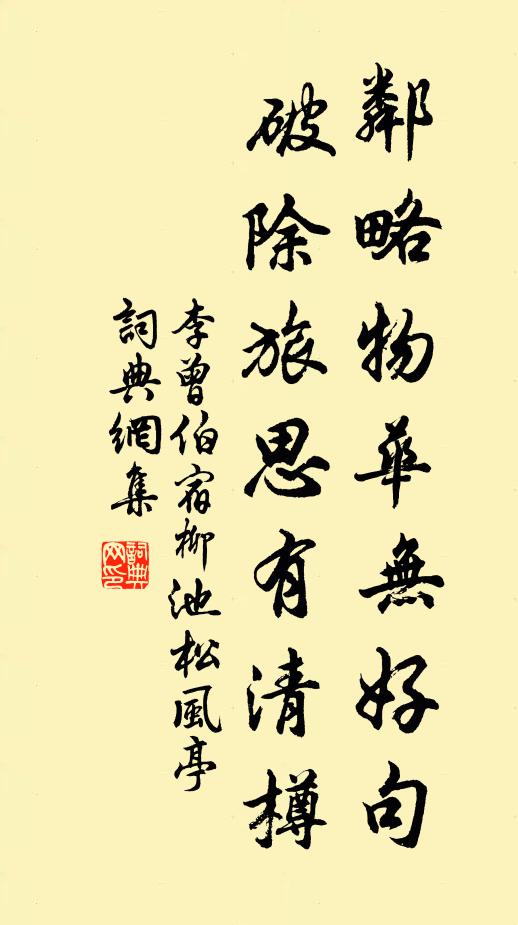 鄰略物華無好句
破除旅思有清樽
李曾伯宿柳池松風亭
詞典網集
詞典
网印